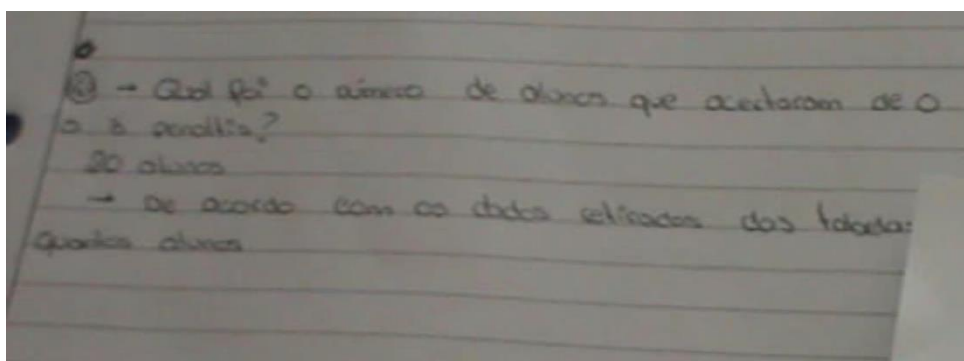 ② → Qual foi o número de alunos que acertaram de 0
a 3 penaltis?
20 alunos
→ De acordo com os dados retirados das tabelas
quantos alunos